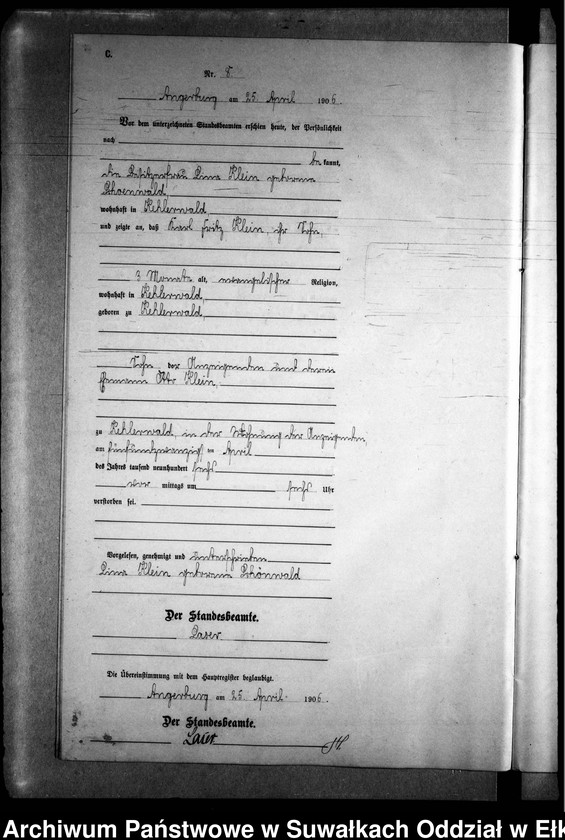 C.
Nr. 8.
Angerburg am 25 April 1906.
Vor dem unterzeichneten Standesbeamten erschien heute, der Persönlichkeit
nach
be kannt,
die Besitzerfrau Lina Klein geborene
Schoenwald,
wohnhaft in Kehlerwald,
und zeigte an, daß Karl Fritz Klein, ihr Sohn,
3 Monate alt, evangelischer Religion,
wohnhaft in Kehlerwald,
geboren zu Kehlerwald,
Sohn der Anzeigenden und deren
Ehemann Otto Klein,
zu Kehlerwald, in der Wohnung der Anzeigenden,
am fünfundzwanzigsten April
des Jahres tausend neunhundert sechs
vor mittags um sechs Uhr
verstorben sei.
Vorgelesen, genehmigt und unterschrieben
Lina Klein geborene Schönwald
Der Standesbeamte.
Die Übereinstimmung mit dem Hauptregister beglaubigt.
Angerburg am 25. April. 1906.
Der Standesbeamte.
Archiwum Państwowe w Suwałkach Oddział w Ełk